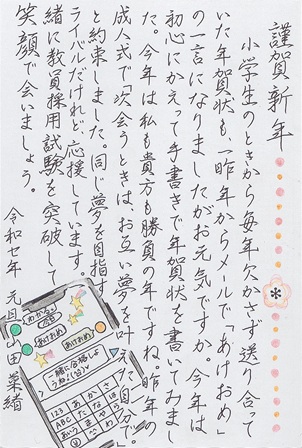 謹賀新年
小学生のときから毎年欠かさず送り合って
いた年賀状も、一昨年からメルで「あけおめ」
の一言になりましたがお元気ですか。今年は
初心にかえって手書きで年賀状を書いてみまし
た。今年は私も貴方も勝負の年ですね。昨年の
成人式で「次会うときは、お互い夢を叶えた自分で」
と約束しました。同じ夢を目指す
ライバルだけれど、応援しています。
緒に教員採用試験を突破して
笑顔で会いましょう。
令和七年 元旦
山田菜緒
あけおめ
あけおめ
一緒に合格しよ
うね！
123 あ か さ
ABC た な は
あいう ま や ら